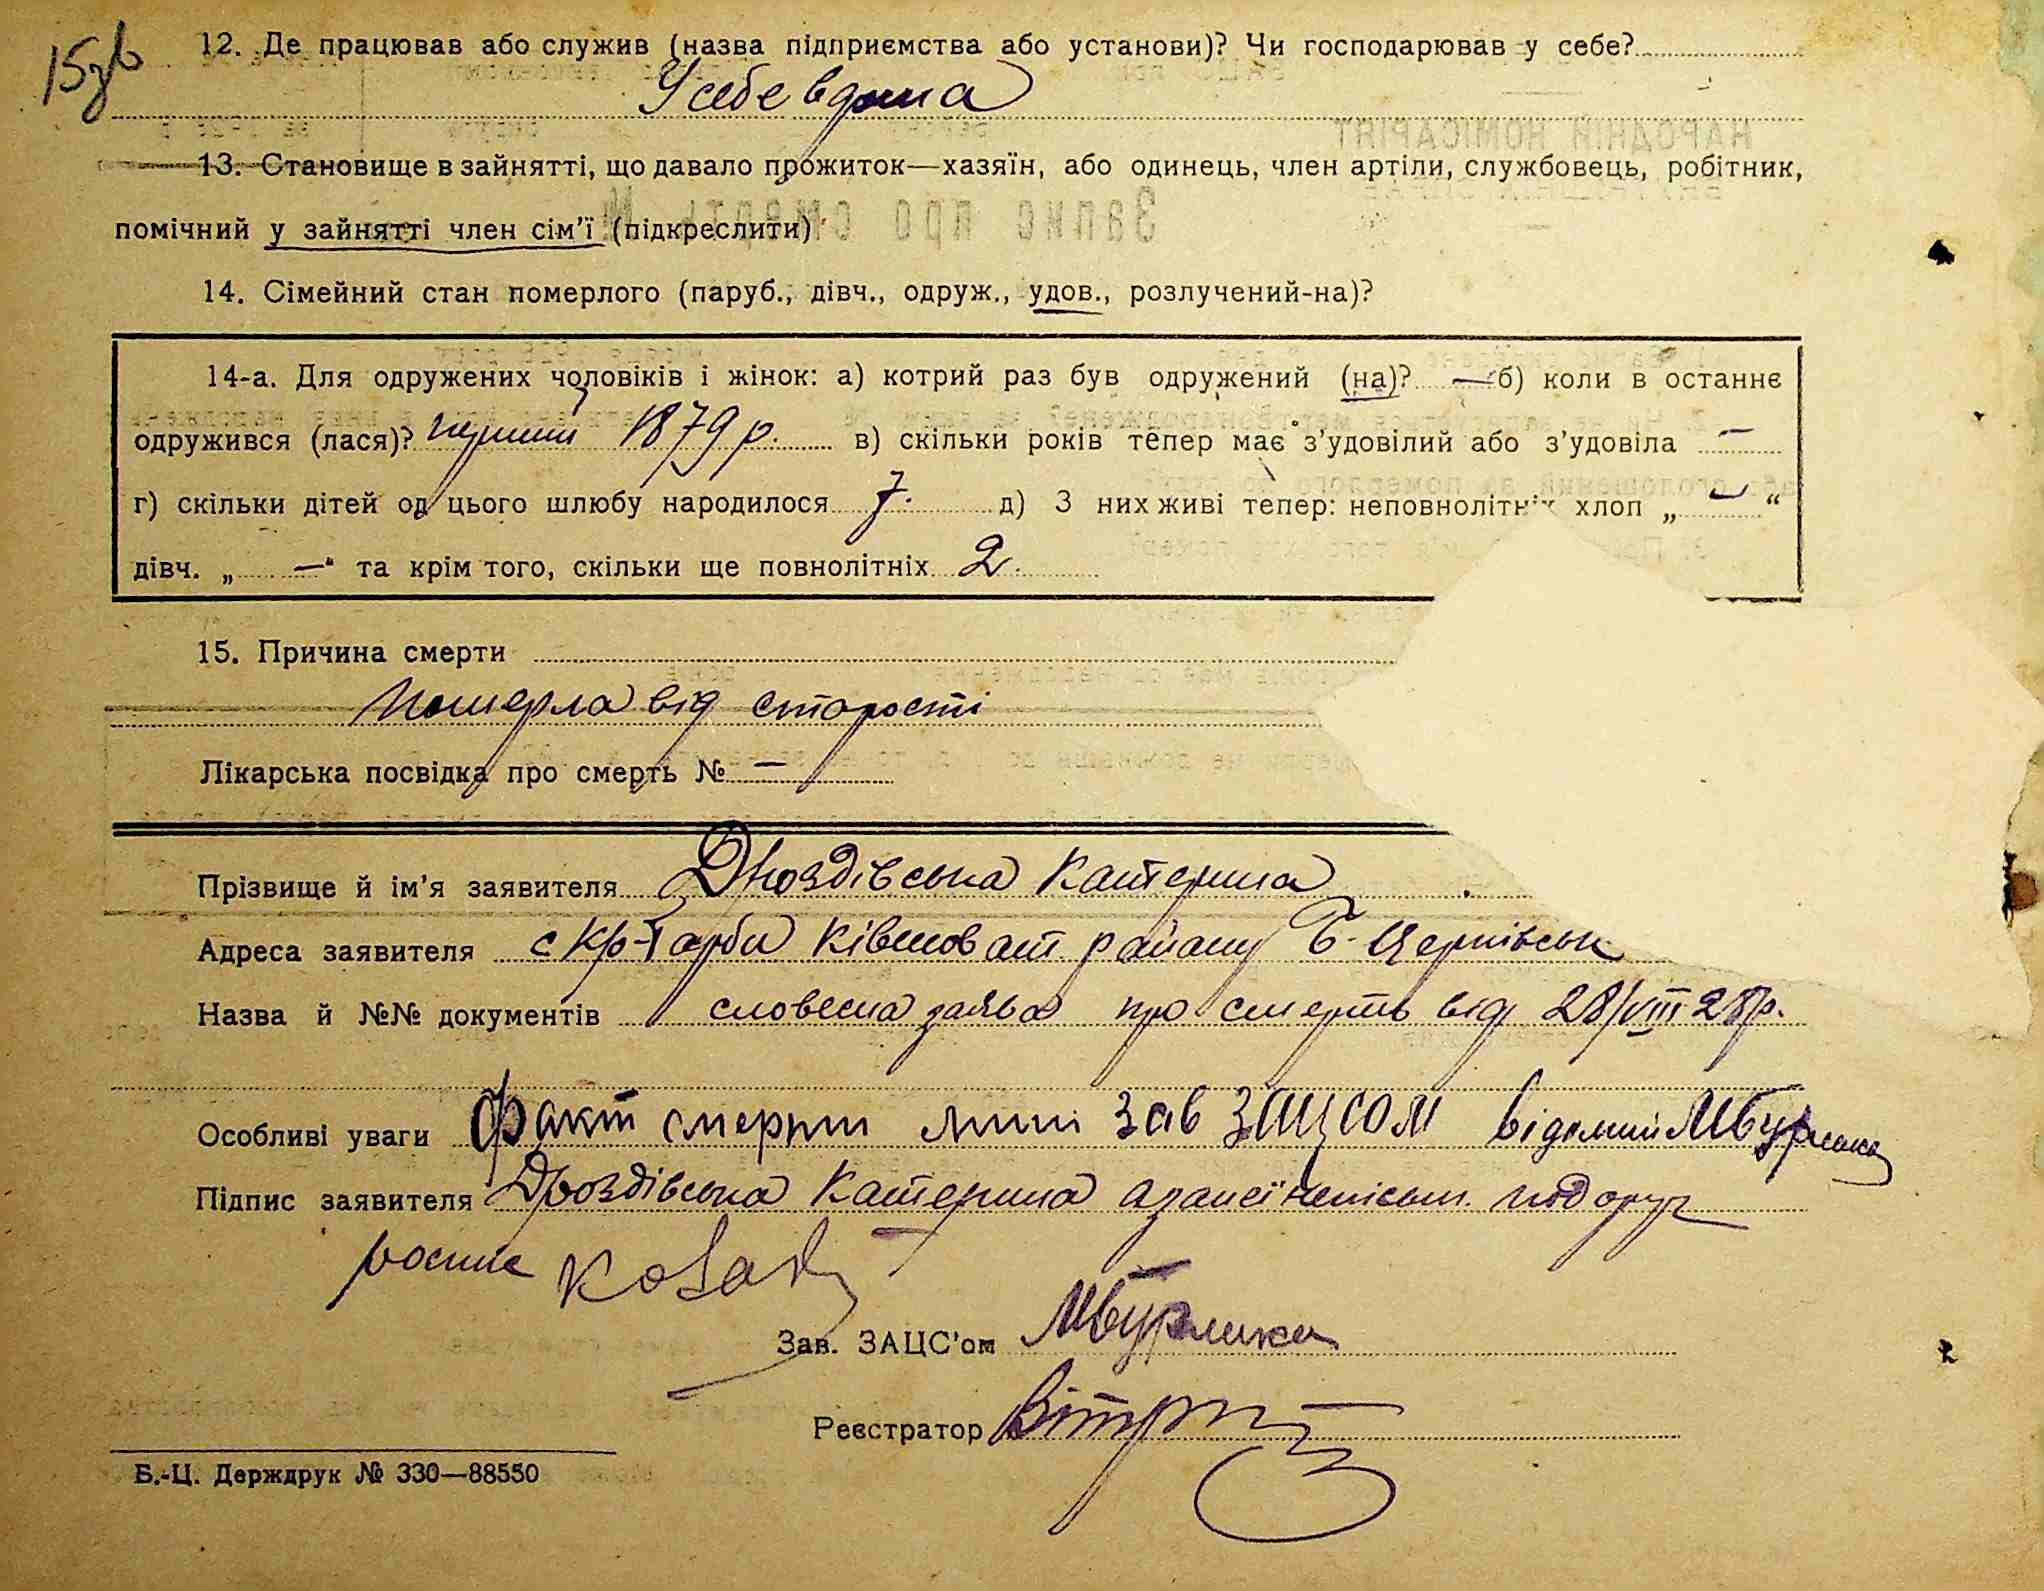 15зв
12. Де працював або служив (назва підприємства або установи)? Чи господарював у себе?
У себе вдома
13. Становище в зайнятті, що давало прожиток—хазяїн, або одинець, член артіли, службовець, робітник,
помічний у зайнятті член сім'ї (підкреслити)
14. Сімейний стан померлого (паруб., дівч., одруж., удов., розлучений-на)?
14-а. Для одружених чоловіків і жінок: а) котрий раз був одружений (на)? — б) коли в останнє
одружився (лася)? перший 1879 р. в) скільки років тепер має з'удовілий або з'удовіла —
г) скільки дітей од цього шлюбу народилося 7. д) З них живі тепер: неповнолітніх хлоп „ — “
дівч. „ — “ та крім того, скільки ще повнолітніх 2.
15. Причина смерти
померла від старості
Лікарська посвідка про смерть № —
Прізвище й ім'я заявителя Дроздівська Катерина
Адреса заявителя с Кр-Гарби Ківшоват. району Б-Церківськ
Назва й №№ документів словесна заява про смерть від 28/VIII 28р.
Особливі уваги Факт смерти мині Зав ЗАЦСОМ відомий МБурлака
Підпис заявителя Дроздівська Катерина а за неї неписьм.
роспис
Зав. ЗАЦС'ом МБурлака
Реєстратор
Б.-Ц. Держдрук № 330—88550